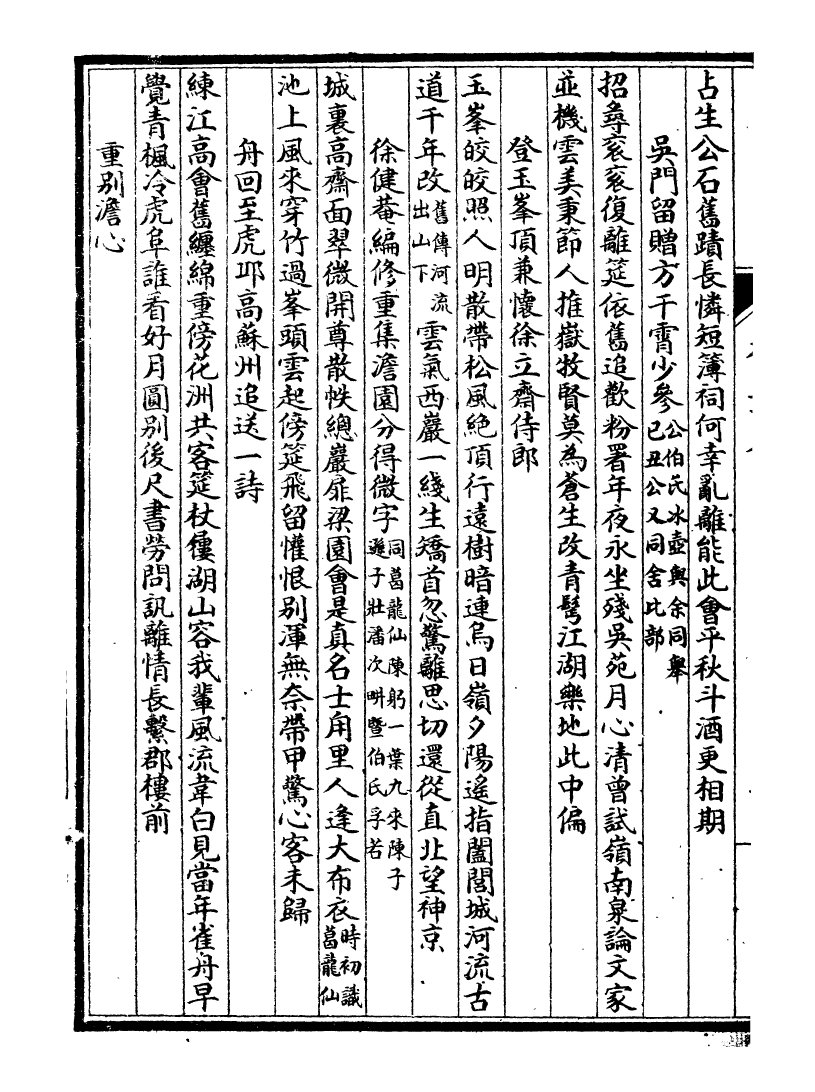 占生公石舊蹟長憐短簿祠何幸亂離能此會平秋斗酒更相期
吳門留贈方干霄少參公伯氏冰壺與余同舉
己丑公又同舍比部
招尋衮衮復離筵依舊追歡粉署年夜永坐殘吳苑月心清曾試嶺南泉論文家
並機雲美秉節人推嶽牧賢莫為蒼生改青髩江湖樂地此中偏
登玉峯頂兼懷徐立齋侍郎
玉峯皎皎照人明散帶松風絶頂行遠樹暗連烏日嶺夕陽遙指闔閭城河流古
道千年改舊傳河流
出山下雲氣西巖一綫生矯首忽驚離思切還從直北望神京
徐健菴編修重集澹園分得微字同葛龍仙陳躬一葉九來陳子
遜子壯潘次畊暨伯氏孚若
城裏高齋面翠微開尊散帙總巖扉梁園會是真名士甪里人逢大布衣時初識
葛龍仙
池上風來穿竹過峯頭雲起傍筵飛留懽恨别渾無奈帶甲驚心客未歸
舟回至虎邱高蘇州追送一詩
練江高會舊纏綿重傍花洲共客筵杖僂湖山容我輩風流韋白見當年雀舟早
覺青楓冷虎阜誰看好月圓别後尺書勞問訊離情長繫郡樓前
重别澹心